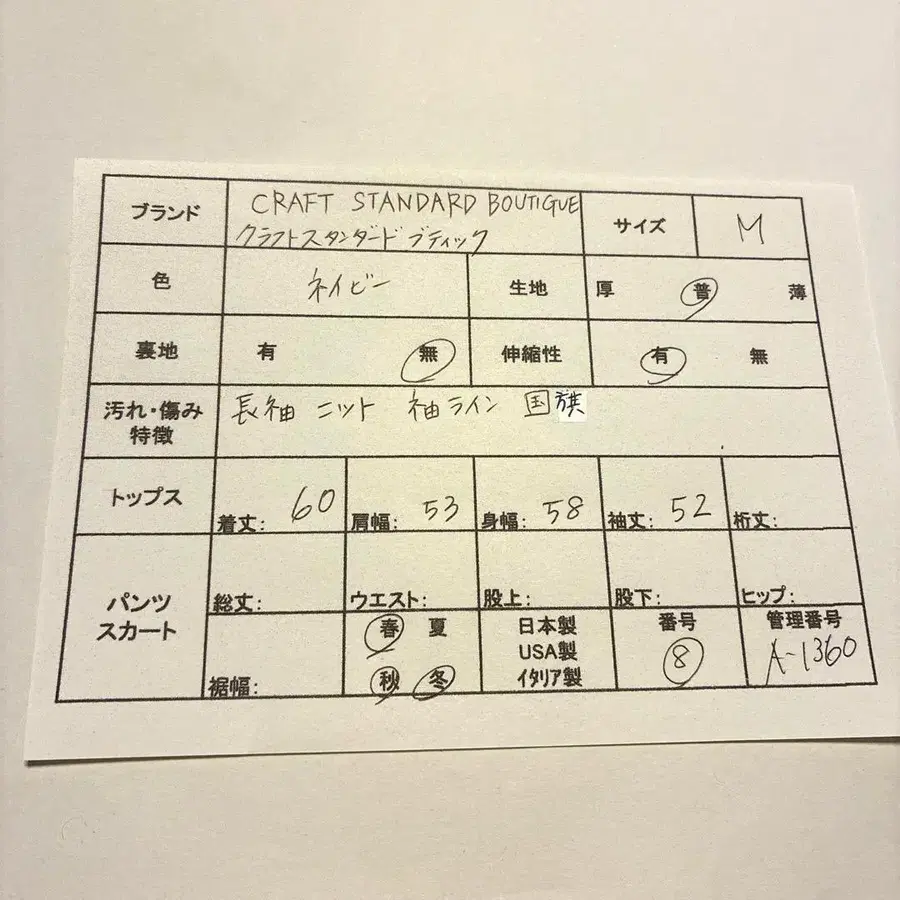 ブランド CRAFT STANDARD BOUTIGUE サイズ M
クラフトスタンダードブティック
色 ネイビー 生地 厚 普 薄
裏地 有 無 伸縮性 有 無
汚れ・傷み 長袖 ニット 袖ライン 国旗
特徴
トップス 着丈: 60 肩幅: 53 身幅: 58 袖丈: 52 裄丈:
パンツ スカート 総丈: ウエスト: 股上: 股下: ヒップ:
裾幅: 春 夏 日本製 番号 管理番号
USA製 8 A-1360
秋 冬 イタリア製